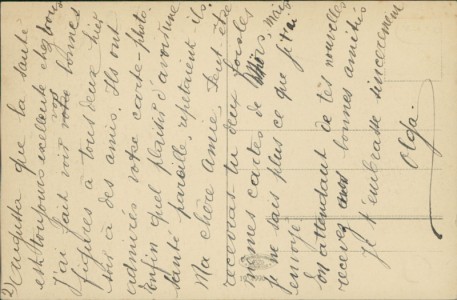 2) Augusta que la santé
est toujours exellente chez vous
J'ai fait voir vos bonnes
figures à tous deux hier
soir à des amis. Ils ont
admirés votre carte-photo.
Enfin quel plaisir d'avoir une
santé pareille, repetaient-ils.
Ma chère amie, Peut être
recevras tu deux fois les
mêmes cartes de mais
je ne sais plus ce que j'ai
envoyé.
En attendant de tes nouvelles
recevez nos bonnes amitiés
Je t'embrasse sincèrement
Olga.